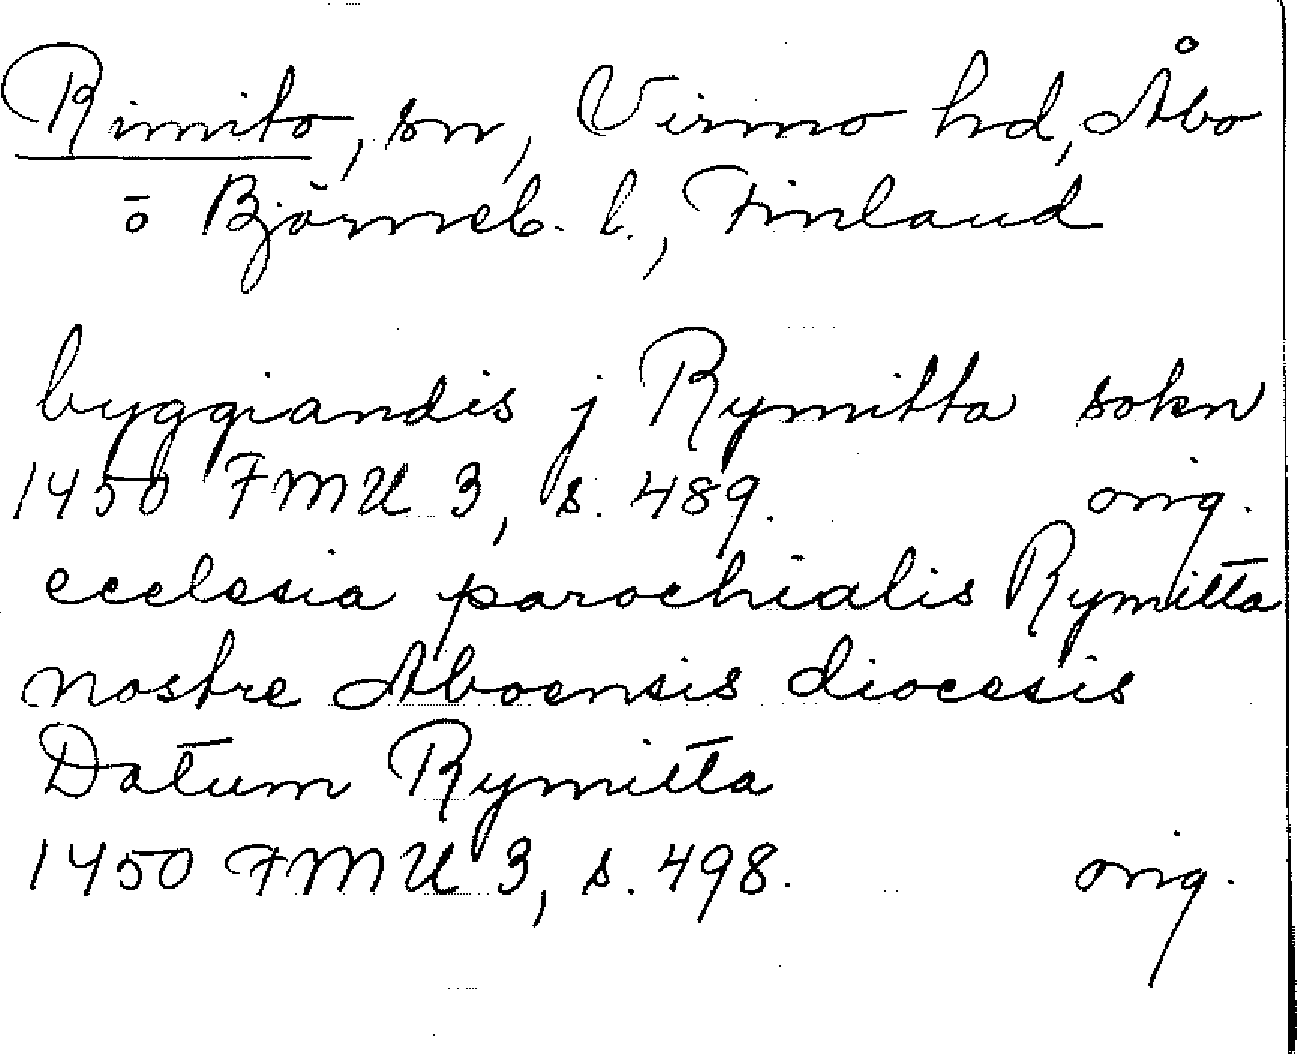 Rimito, sn, Virmo hd, Åbo
o Björneb. l., Finland
byggiandis j Rymitta sokn
1450 FMU 3, s. 489. orig.
ecclesia parochialis Rymitta
nostre Aboensis diocesis
Datum Rymitta
1450 FMU 3, s. 498. orig.